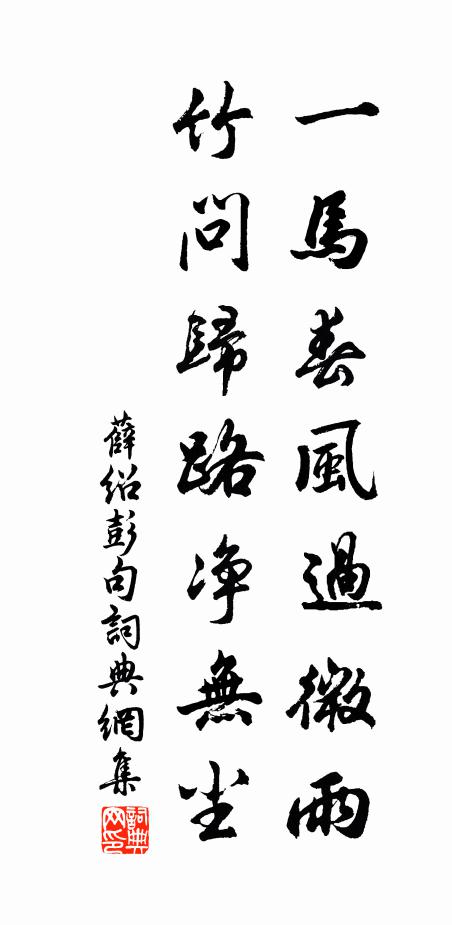 一馬春風過微雨
竹問歸路净無尘
薛紹彭句詞典網集
詞典网印